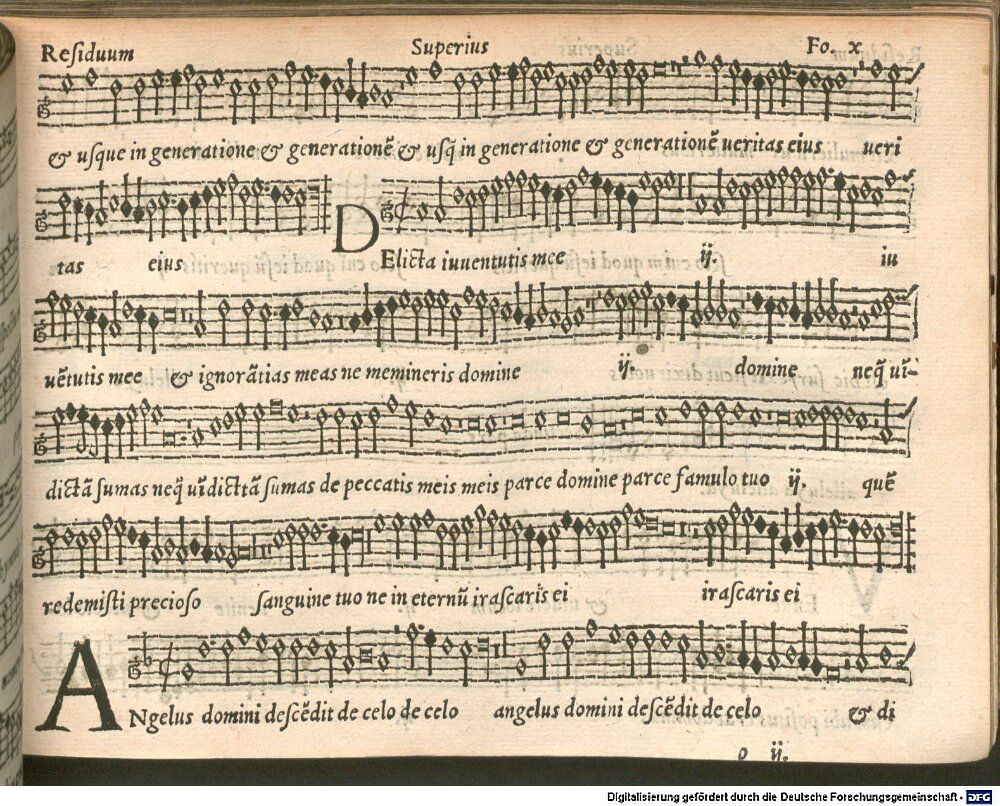 Reſiduum Superius Fo. x
& uſque in generatione & generationē & uſq̄ in generatione & generationē ueritas eius ueri
tas eius DElicta iuuentutis mee ij. iu
uētutis mee & ignorātias meas ne memineris domine ij. domine neq̄ uī-
dictā ſumas neq̄ uīdicttā ſumas de peccatis meis meis parce domine parce famulo tuo ij. quē
redemiſti precioſo ſanguine tuo ne in eternū iraſcaris ei iraſcaris ei
ANgelus domini deſcēdit de celo de celo angelus domini deſcēdit de celo & di
o ij.
Digitalisierung gefördert durch die Deutsche Forschungsgemeinschaft - DFG